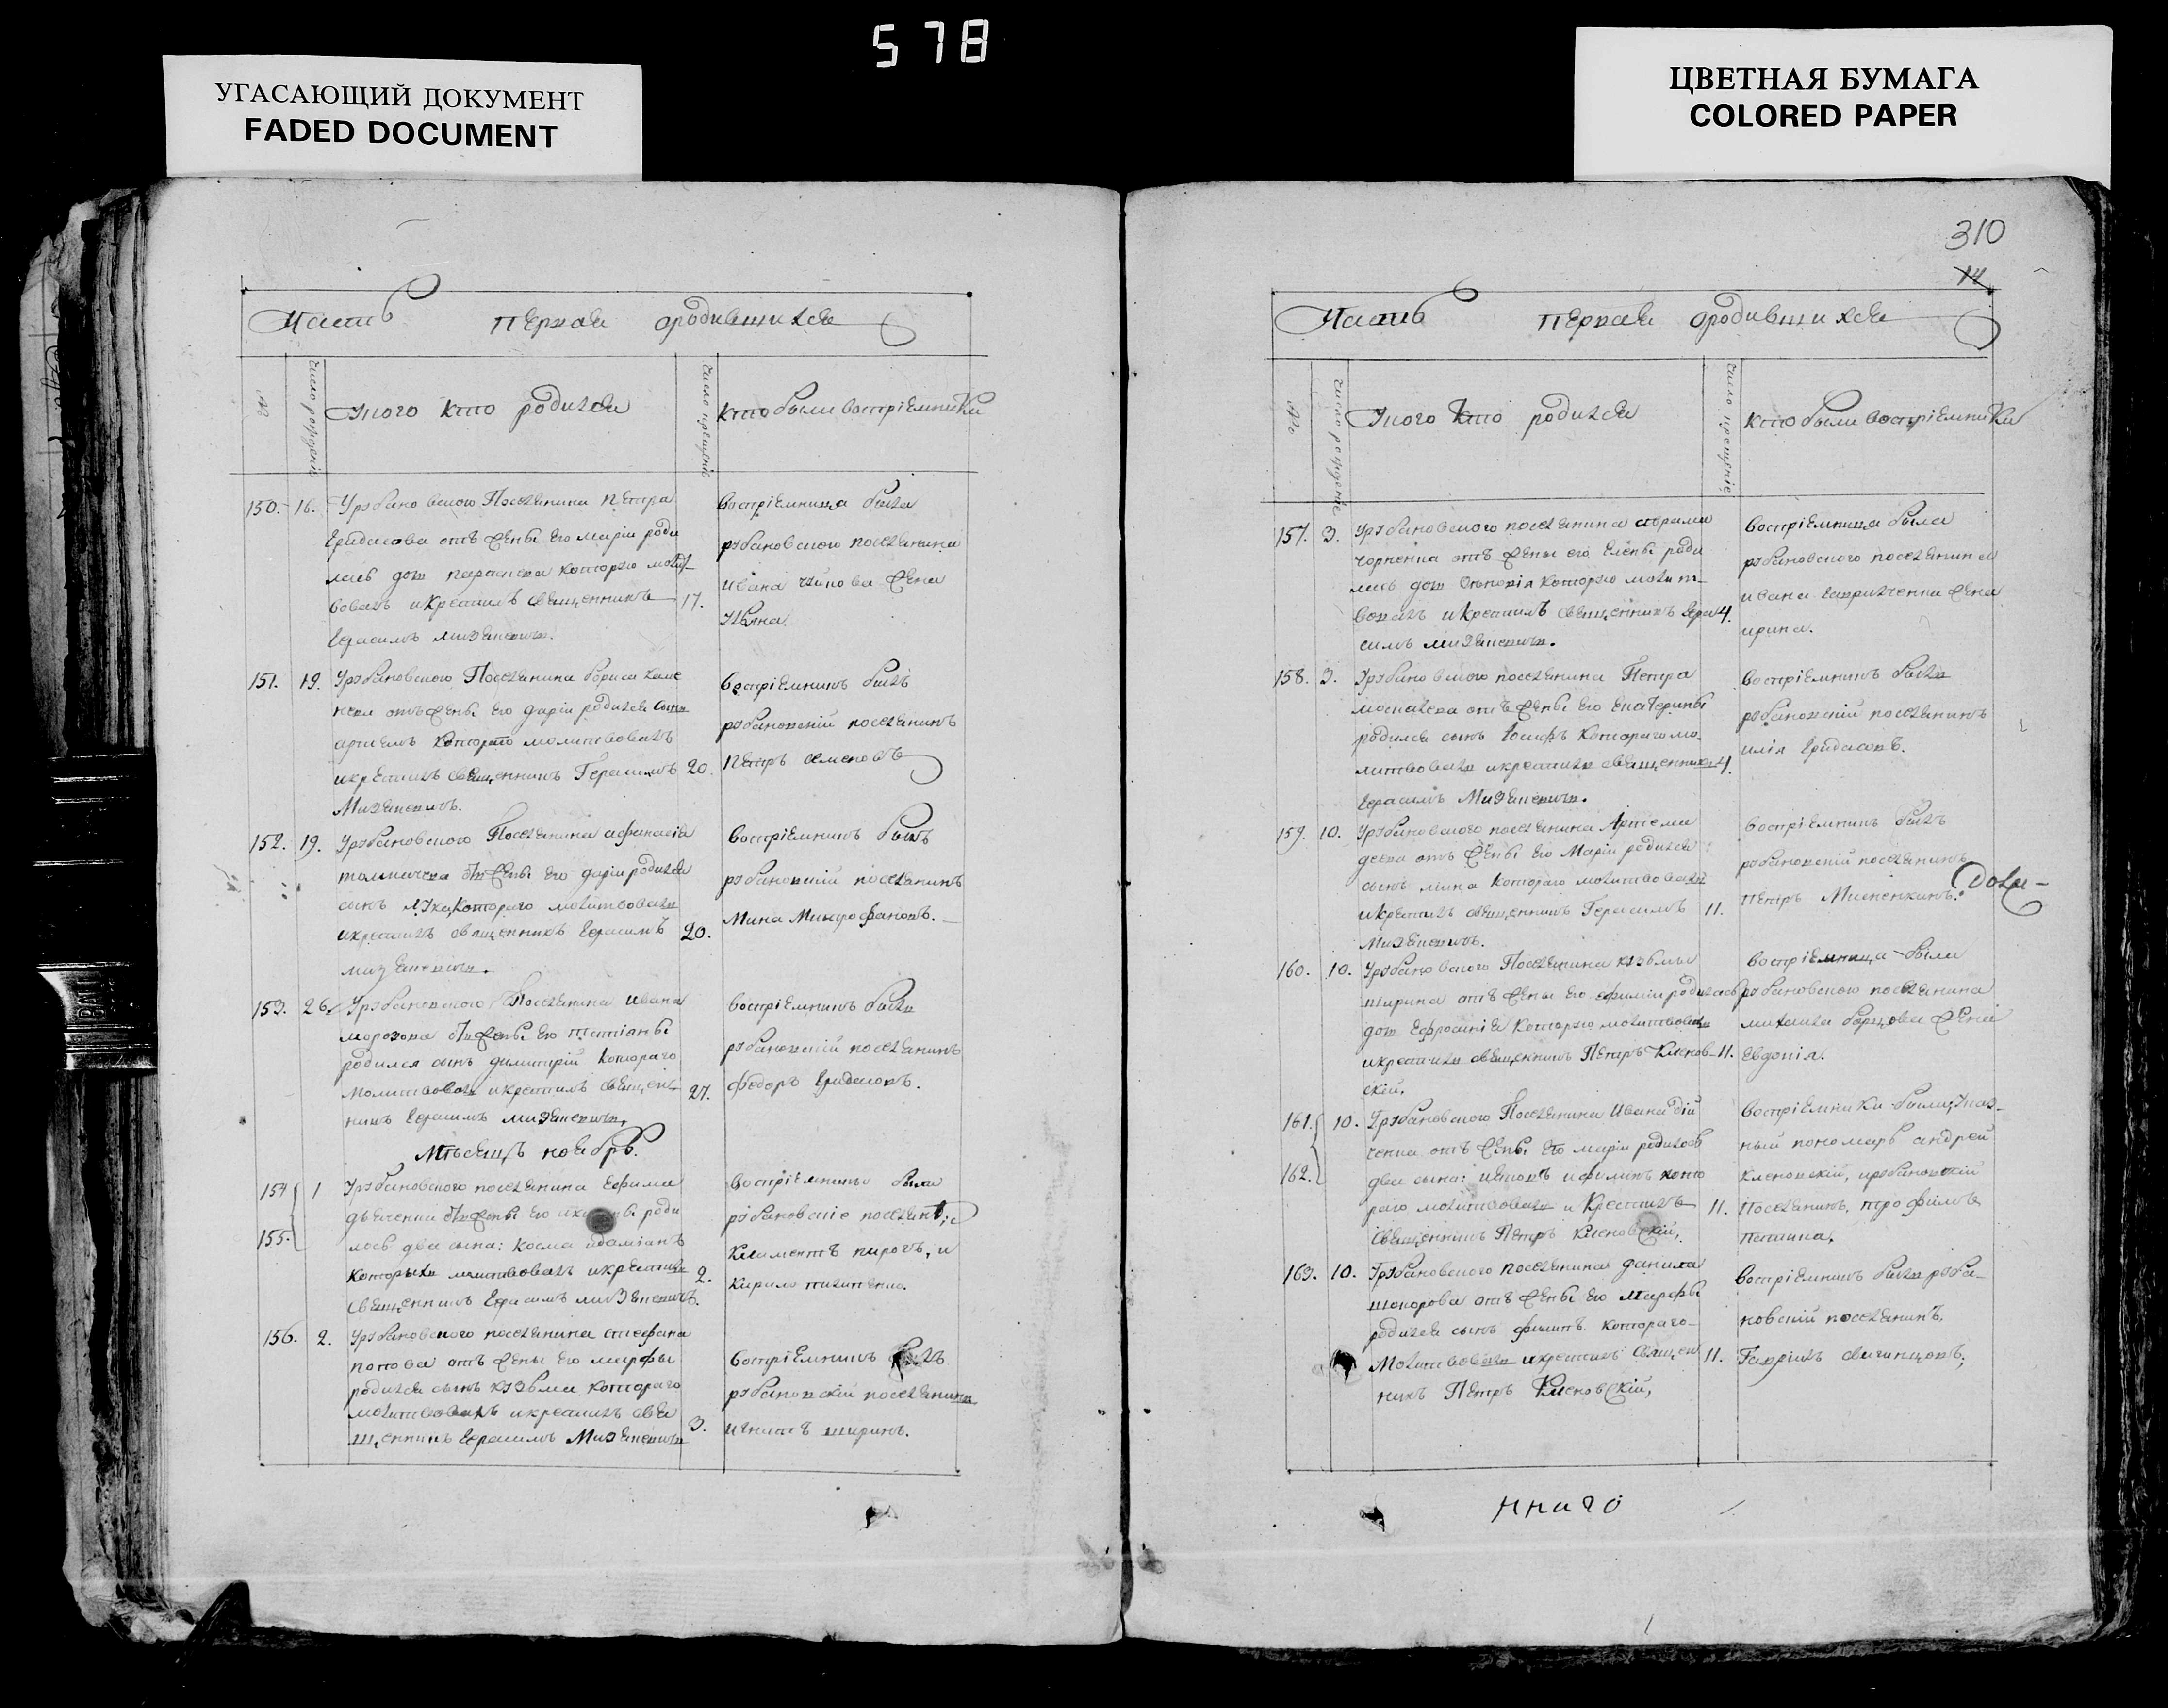 578
УГАСАЮЩИЙ ДОКУМЕНТ
FADED DOCUMENT
ЦВЕТНАЯ БУМАГА
COLORED PAPER
Часть первая ородившихся
№
число рождения
Укого кто родился
число крещения
кто были восприемники
150. 16. Урубановского Поселянина петра
Гридасова отъ жены его маріи роди
лась дощ параскева которую молит
вовалъ и крестилъ священникъ 17.
Герасимъ мизеневичъ.
восприемница была
рубановского поселянина
ивана жена
151. 19. Урубановского Поселянина бориса
отъ жены его даріи родился сынъ
артемъ которого молитвовалъ
и крестилъ священникъ Герасимъ 20.
Мизеневичъ.
восприемникъ былъ
рубановскій поселянинъ
Петръ семеновъ
152. 19. Урубановского Поселянина афанасія
отъ жены его даріи родился
сынъ лука которого молитвовалъ
и крестилъ священникъ Герасимъ 20.
мизеневичъ.
восприемникъ былъ
рубановскій поселянинъ
Мина Митрофановъ.
153. 26. Урубановского Поселянина ивана
морозова отъ жены его татіаны
родился сынъ димитрій которого
молитвовалъ и крестилъ священ 27.
никъ Герасимъ мизеневичъ.
восприемникъ былъ
рубановскій поселянинъ
федоръ Гридасовъ.
Мѣсяцъ ноябрь.
154 1 Урубановского поселянина Ефима
дьяченка отъ жены его роди
155. лось два сына: косма идаміанъ
которыхъ молитвовалъ и крестилъ 2.
священникъ Герасимъ мизеневичъ.
восприемники были
рубановскіе поселяне
Климентъ пирогъ, и
Кирило
156. 2. Урубановского поселянина стефана
попова отъ жены его марфы
родился сынъ кузьма которого
молитвовалъ и крестилъ свя
щенникъ Герасимъ Мизеневичъ 3.
восприемникъ былъ
рубановскій поселянинъ
игнатъ ширинъ.
310
14
Часть первая ородившихся
№
число рождение
Укого кто родился
число крещение
кто были восприемники
157. 3. Урубановского поселянина абрама
чорненка отъ жены его Елены роди
лась дощ которую молит
вовалъ и крестилъ священникъ Гера 4.
симъ мизеневичъ.
восприемница была
рубановского поселянина
ивана гавриленка жена
ирина.
158. 3. Урубановского поселянина Петра
москалева отъ жены его Екатерины
родился сынъ Іосифъ Которагомо
литвовалъ и крестилъ священникъ 4.
Герасимъ Мизеневичъ.
восприемникъ былъ
рубановскій поселянинъ
илія Гридасовъ.
159. 10. Урубановского поселянина Артема
отъ жены его Маріи родился
сынъ мина которого молитвовалъ
и крестилъ священникъ Герасимъ 11.
Мизеневичъ.
восприемникъ былъ
рубановскій поселянинъ
петръ
160. 10. Урубановского Поселянина кузьмы
ширина отъ жены его ефиміи родилась
дощ Ефросинія которую молитвовалъ
и крестилъ священникъ Петръ Кленов 11.
скій.
восприемница была
рубановского поселянина
михаила борцова жена
Евдокія.
161. 10. Урубановского Поселянина Ивана
ченка отъ жены его маріи родилось
162. два сына: и филипъ кото
раго молитвовалъ и Крестилъ 11.
Священникъ Петръ Кленовскій,
восприемники были,
ный пономарь андрей
кленовскій, ирубановскій
Поселянинъ, трофимъ
163. 10. Урубановского поселянина данила
шопорова отъ жены его Марфы
родился сынъ филипъ котораго
Молитвовалъ и крестилъ Священ 11.
никъ Петръ Кленовскій,
восприемникъ былъ руба
новскій поселянинъ,
Гаврилъ